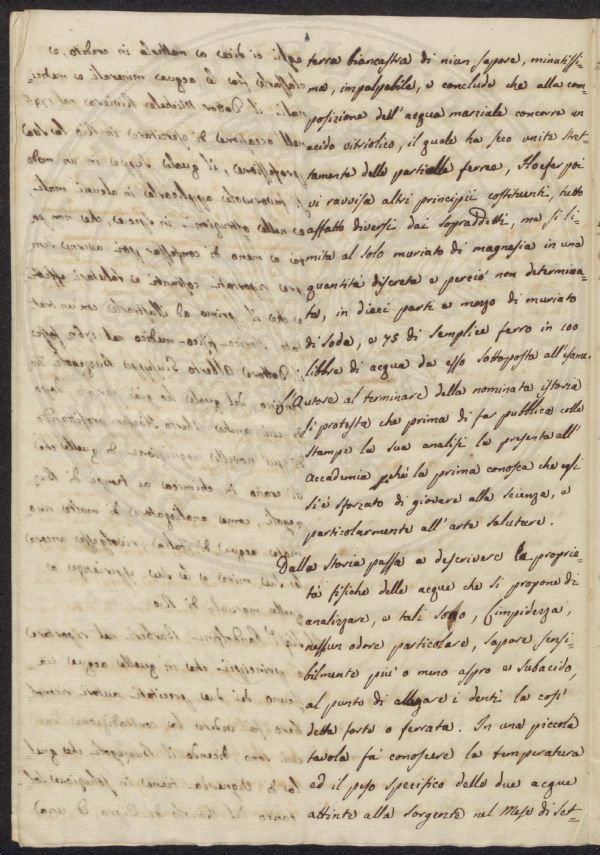 terra biancastra di niun sapore, minutissi-
ma, impalpabile, e conclude che alla com-
posizione dell'acqua marziale concorre un
acido vitriolico, il quale ha seco unite stret-
tamente delle particelle ferree, Hoefer poi
vi ravvisa altri principii costituenti, tutto
affatto diversi dai sopraddetti, ma si li-
mita al solo muriato di magnesia in una
quantità discreta e perciò non determina-
ta, in dieci parti e mezzo di muriato
di soda, e 75 di semplice ferro in 100
libbre di acqua da esso sottoposta all'esame.
L'Autore al terminare della nominata istoria
si protesta che prima di far pubblica colle
stampe la sua analisi la presenta all'
Accademia pché la prima conosca che egli
si è sforzato di giovare alla scienza, e
particolarmente all'arte salutare.
Dalla storia passa a descrivere le proprie-
tà fisiche delle acque che si propone di
analizzare, e tali sono, limpidezza,
nessun odore particolare, sapore sensi-
bilmente più o meno aspro e subacido,
al punto di allegare i denti la così
detta forte o ferrata. In una piccola
tavola fa conoscere la temperatura
ed il peso specifico delle due acque
attinte alla sorgente nel Mese di Set-